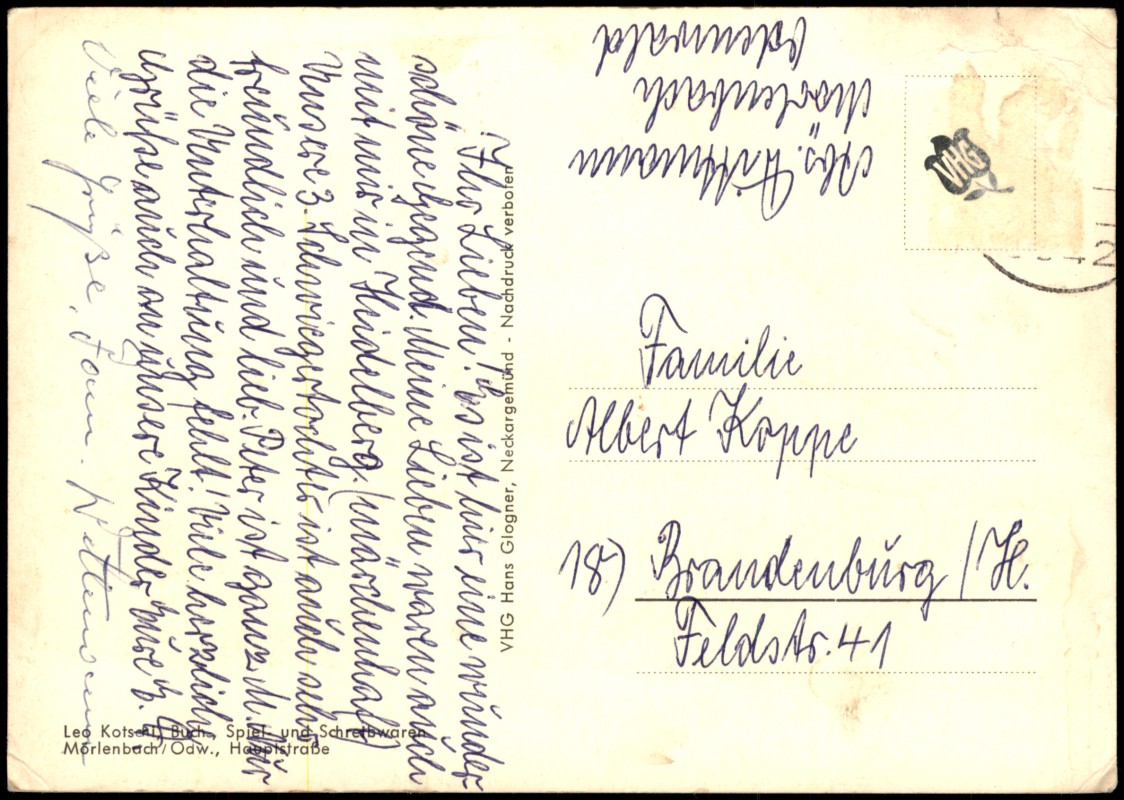 Ihr Lieben! Es ist hier eine wunder
schöne Gegend. Meine Lieben waren auch
mit mir in Heidelberg. (märchenhaft)
Unsere 3. Schwiegertochter ist auch sehr
freundlich und lieb. Peter ist ganz M. Nur
die Unterhaltung fehlt! Viele herzliche
Grüße auch an unsere Kinder Eure
Viele Grüße, Fam. Dittmann
VHG Hans Glogner, Neckargemünd - Nachdruck verboten!
Leo Kotschi, Buch-, Spiel- und Schreibwaren
Mörlenbach/Odw., Hauptstraße
Abs. Dittmann
Mörlenbach
Odenwald
VHG
Familie
Albert Koppe
18) Brandenburg/H.
Feldstr. 41